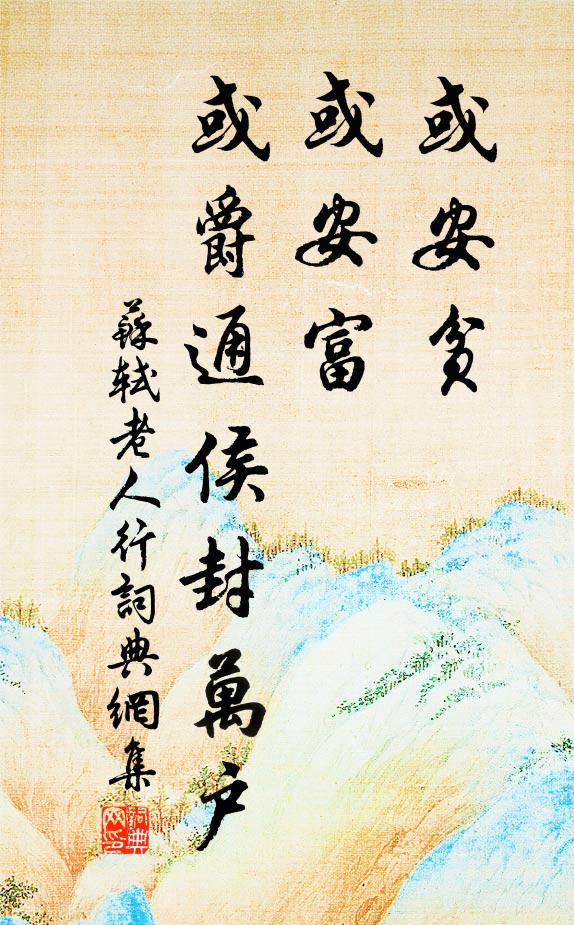 或安貧
或安富
或爵通侯封萬戶
蘇軾老人行詞典網集
詞典网印